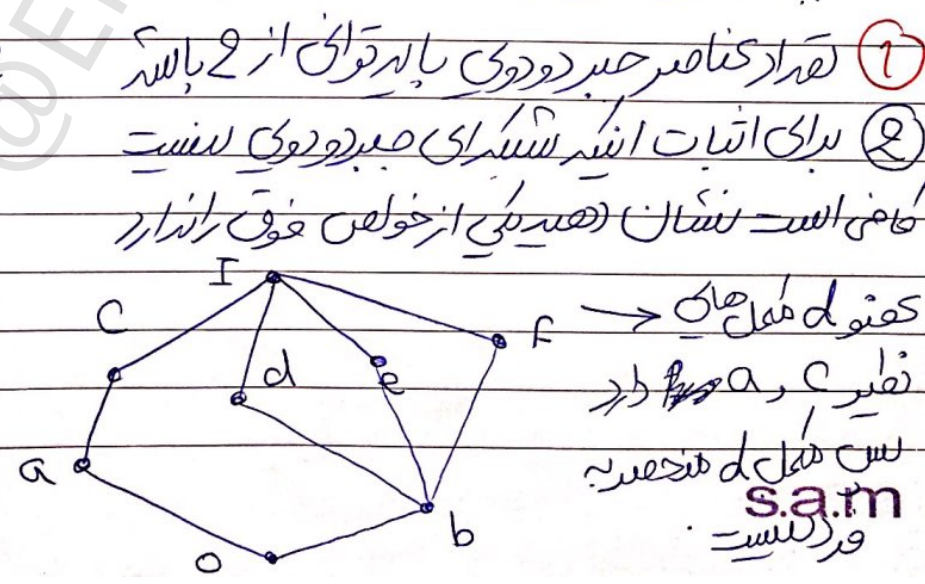 ① تعداد عناصر جبر دودویی باید توانی از 2 باشد
② برای اثبات اینکه شبکه‌ای جبر دودویی نیست
کافی است نشان دهید یکی از خواص فوق را ندارد
I
C
عضو d مکمل‌های →
f
d
e
نظیر c و a دارد
a
پس مکمل d منحصر به
s.a.m
b
فرد نیست.
o